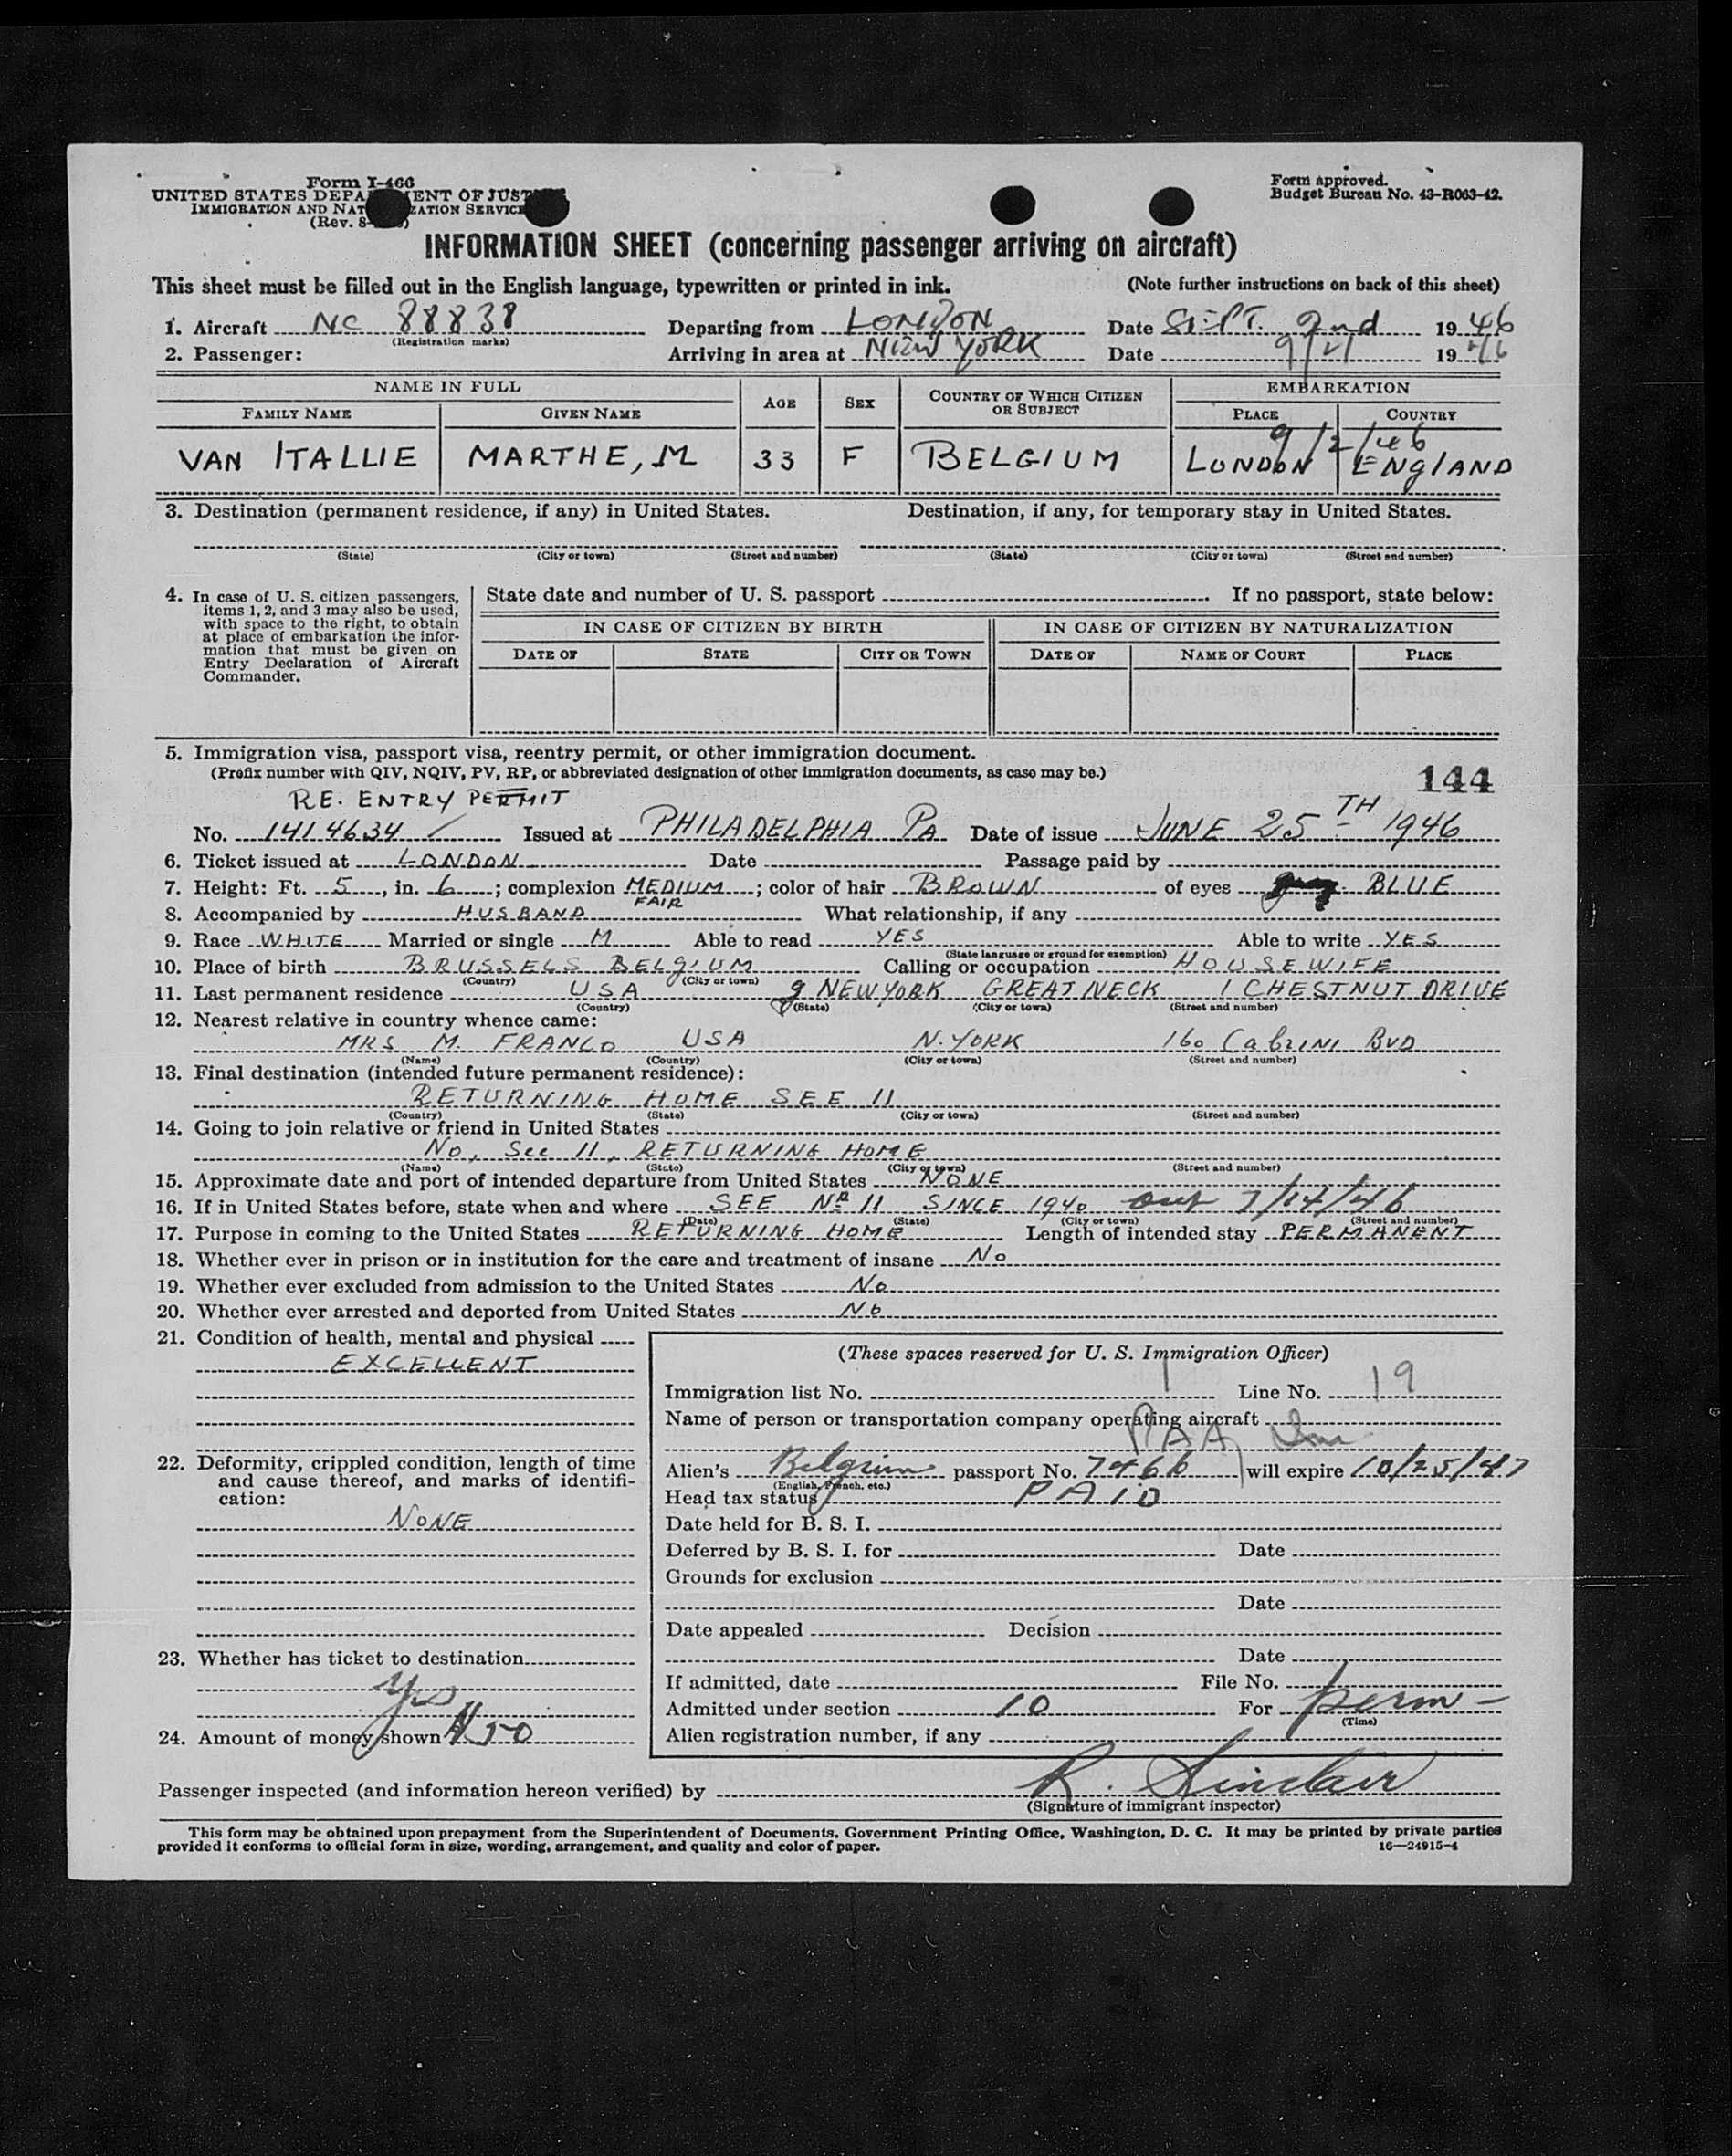 Form I-466
UNITED STATES DEPA ENT OF JUST
IMMIGRATION AND NAT ZATION SERVICE
(Rev. 8-
Form approved.
Budget Bureau No. 43-R063-42.
INFORMATION SHEET (concerning passenger arriving on aircraft)
This sheet must be filled out in the English language, typewritten or printed in ink. (Note further instructions on back of this sheet)
1. Aircraft NC 88838 Departing from LONDON Date SEPT. 2nd 1946
(Registration marks)
2. Passenger: Arriving in area at NEW YORK Date 1946
NAME IN FULL AGE SEX COUNTRY OF WHICH CITIZEN OR SUBJECT EMBARKATION
FAMILY NAME GIVEN NAME PLACE COUNTRY
9/2/46
VAN ITALLIE MARTHE, M 33 F BELGIUM LONDON ENglAND
3. Destination (permanent residence, if any) in United States. Destination, if any, for temporary stay in United States.
(State) (City or town) (Street and number) (State) (City or town) (Street and number)
4. In case of U. S. citizen passengers, items 1, 2, and 3 may also be used, with space to the right, to obtain at place of embarkation the information that must be given on Entry Declaration of Aircraft Commander.
State date and number of U. S. passport If no passport, state below:
IN CASE OF CITIZEN BY BIRTH IN CASE OF CITIZEN BY NATURALIZATION
DATE OF STATE CITY OR TOWN DATE OF NAME OF COURT PLACE
5. Immigration visa, passport visa, reentry permit, or other immigration document.
(Prefix number with QIV, NQIV, PV, RP, or abbreviated designation of other immigration documents, as case may be.) 144
RE. ENTRY PERMIT
No. 1414634 Issued at PHILADELPHIA PA Date of issue JUNE 25TH 1946
6. Ticket issued at LONDON Date Passage paid by
7. Height: Ft. 5, in. 6; complexion MEDIUM; color of hair BROWN of eyes BLUE
FAIR
8. Accompanied by HUSBAND What relationship, if any
9. Race WHITE Married or single M Able to read YES Able to write YES
(State language or ground for exemption)
10. Place of birth BRUSSELS BELgIUM Calling or occupation HOUSEWIFE
(Country) (City or town)
11. Last permanent residence USA NEWYORK GREAT NECK 1 CHESTNUT DRIVE
(Country) (State) (City or town) (Street and number)
12. Nearest relative in country whence came:
MRS M. FRANCO USA N. YORK 160 CabRINI BVD
(Name) (Country) (City or town) (Street and number)
13. Final destination (intended future permanent residence):
RETURNING HOME SEE 11
(Country) (State) (City or town) (Street and number)
14. Going to join relative or friend in United States
No, See 11, RETURNING HOME
(Name) (State) (City or town) (Street and number)
15. Approximate date and port of intended departure from United States NONE
16. If in United States before, state when and where SEE NR 11 SINCE 1940 out 7/14/46
(Date) (State) (City or town) (Street and number)
17. Purpose in coming to the United States RETURNING HOME Length of intended stay PERMANENT
18. Whether ever in prison or in institution for the care and treatment of insane No
19. Whether ever excluded from admission to the United States No
20. Whether ever arrested and deported from United States No
21. Condition of health, mental and physical
EXCELLENT
22. Deformity, crippled condition, length of time and cause thereof, and marks of identification:
NONE
23. Whether has ticket to destination
Yes
24. Amount of money shown $50
(These spaces reserved for U. S. Immigration Officer)
Immigration list No. 1 Line No. 19
Name of person or transportation company operating aircraft
PAA
Alien's Belgium passport No. 7466 will expire 10/25/47
(English, French, etc.)
Head tax status PAID
Date held for B. S. I.
Deferred by B. S. I. for Date
Grounds for exclusion
Date
Date appealed Decision
Date
If admitted, date File No.
Admitted under section 10 For perm—
(Time)
Alien registration number, if any
Passenger inspected (and information hereon verified) by R. Sinclair
(Signature of immigrant inspector)
This form may be obtained upon prepayment from the Superintendent of Documents, Government Printing Office, Washington, D. C. It may be printed by private parties
provided it conforms to official form in size, wording, arrangement, and quality and color of paper. 16—24915-4